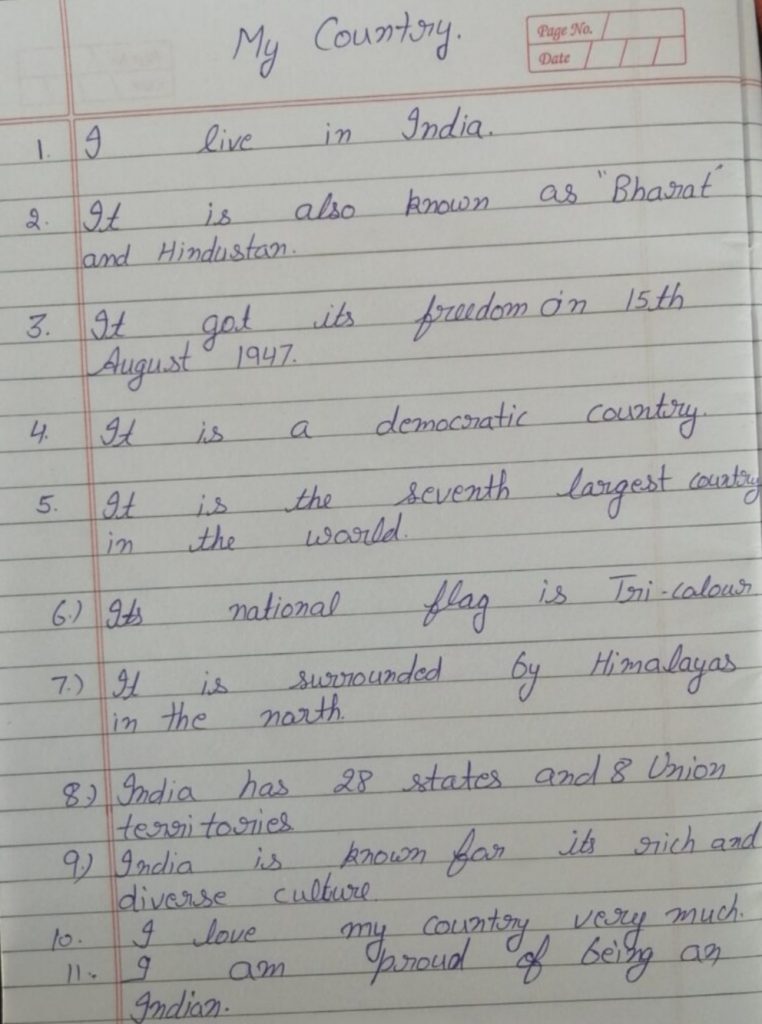 My Country.
Page No.
Date
1. I live in India.
2. It is also known as "Bharat"
and Hindustan.
3. It got its freedom on 15th
August 1947.
4. It is a democratic country.
5. It is the seventh largest country
in the world.
6.) Its national flag is Tri-colour
7.) It is surrounded by Himalayas
in the north.
8.) India has 28 states and 8 Union
territories
9.) India is known for its rich and
diverse culture.
10. I love my country very much.
11. I am proud of being an
Indian.